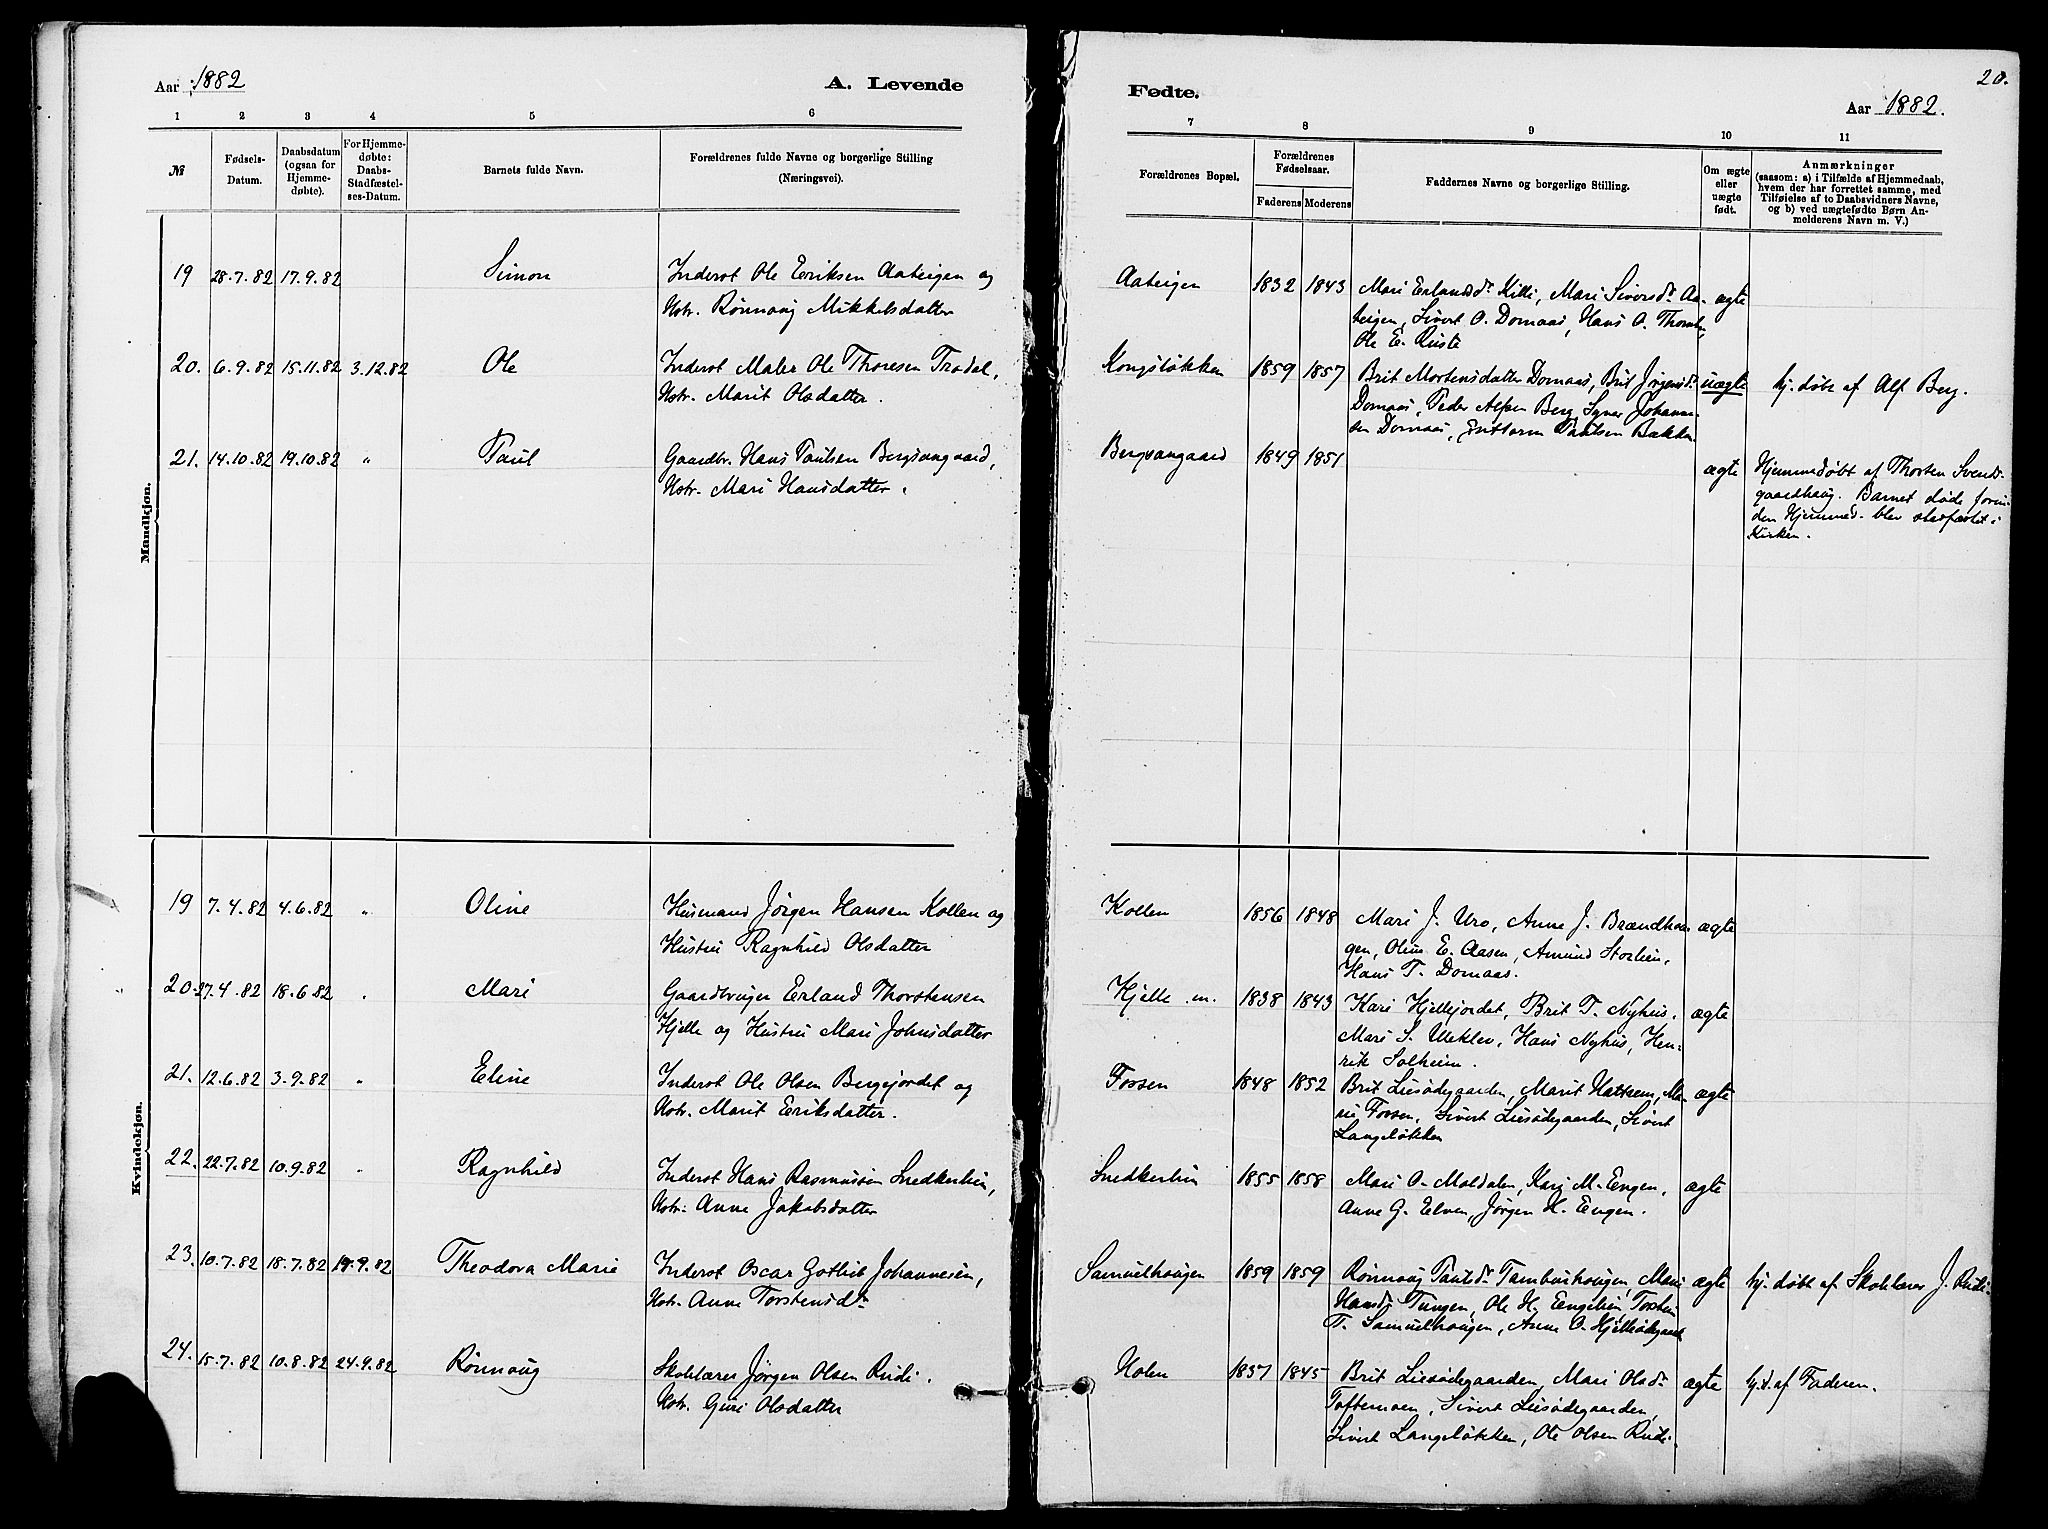 Aar 1882
A. Levende
1 2 3 4 5 6
№
Fødsels-
Datum.
Daabsdatum
(ogsaa for
Hjemme-
døbte).
For Hjemme-
døbte:
Daabs-
Stadfæstel-
ses-Datum.
Barnets fulde Navn.
Forældrenes fulde Navne og borgerlige Stilling
(Næringsvei).
Mandkjøn.
19 28.7.82 17.9.82 Simon Inderst Ole Eriksen Aateigen og
Hstr. Rønnaug Mikkelsdatter
20. 6.9.82 15.11.82 3.12.82 Ole Inderst Maler Ole Thoresen Trødal,
Hstr. Marit Olsdatter.
21. 14.10.82 19.10.82 " Paul Gaardbr. Hans Paulsen Bergsvangaard,
Hstr. Mari Hansdatter.
Kvindekjøn.
19 7.4.82 4.6.82 " Oline Husmand Jørgen Hansen Kollen og
Hustru Ragnhild Olsdatter
20. 27.4.82 18.6.82 " Mari Gaardbruger Erland Thorstensen
Hjelle og Hustru Mari Johnsdatter
21. 12.6.82 3.9.82 " Eline Inderst Ole Olsen Bergejordet og
Hstr. Marit Eriksdatter.
22. 22.7.82 10.9.82 " Ragnhild Inderst Hans Rasmussen Snedkerlien,
Hstr. Anne Jakobsdatter
23. 10.7.82 18.7.82 19.9.82 Theodora Marie Inderst Oscar Gotlieb Johannesen,
Hstr. Anne Torstensdr
24. 15.7.82 10.8.82 24.9.82 Rønnaug Skolelærer Jørgen Olsen Rudi.
Hstr. Guri Olsdatter
20.
Fødte.
Aar 1882.
7 8 9 10 11
Forældrenes Bopæl.
Forældrenes
Fødselsaar.
Faderens Moderens
Faddernes Navne og borgerlige Stilling.
Om ægte
eller
uægte
født.
Anmærkninger
(saasom: a) i Tilfælde af Hjemmedaab,
hvem der har forrettet samme, med
Tilføielse af to Daabsvidners Navne,
og b) ved uægtefødte Børn An-
melderens Navn m. V.)
Aateigen 1832 1843 Mari Erlandsdr Killi, Mari Siversdr Aa- ægte
teigen, Sivert O. Domaas, Hans O.
Ole E. Ruste
Kongsløkken 1859 1857 Brit Mortensdatter Domaas, Brit Jørgensdr uægte hj. døbt af Alf Berg.
Domaas, Peder Alfsen Berg, Syver Johanne-
sen Domaas, Guttorm Paulsen Bækken
Bergsvangaard 1849 1851 ægte Hjemmedøbt af Thorsten Svends-
gaardhaug. Barnet døde forin-
den Hjemmed. blev stadfæstet i
Kirken.
Kollen 1856 1848 Mari J. Uro, Anne J. Brændhau- ægte
gen, Oline E. Aasen, Amund Storlien,
Hans T. Domaas.
Hjelle m. 1838 1843 Kari Hjellejordet, Brit T. Nyhus, ægte
Mari S. Uleklev, Hans Nyhus, Hen-
rik Solheim.
Forsen 1848 1852 Brit Liesødegaarden, Marit Hattrem, Ma- ægte
ri Forsen, Sivert Liesødegaarden, Sivert
Langeløkken
Snedkerlien 1855 1858 Mari O. Moldalen, Kari M. Engen, ægte
Anne G. Elven, Jørgen H. Engen.
Samuelhougen 1859 1859 Rønnaug Paulsdr Tamburhougen, Mari ægte hj. døbt af Skolelærer J. Rudi.
Hansdr Tungen, Ole H. Engelien, Torsten
T. Samuelhougen, Anne O. Hjellesødegaard
Holen 1837 1845 Brit Liesødegaarden, Mari Olsdr ægte hj.d. af Faderen.
Toftemoen, Sivert Liesødegaarden,
Sivert Langeløkken, Ole Olsen Rudi.